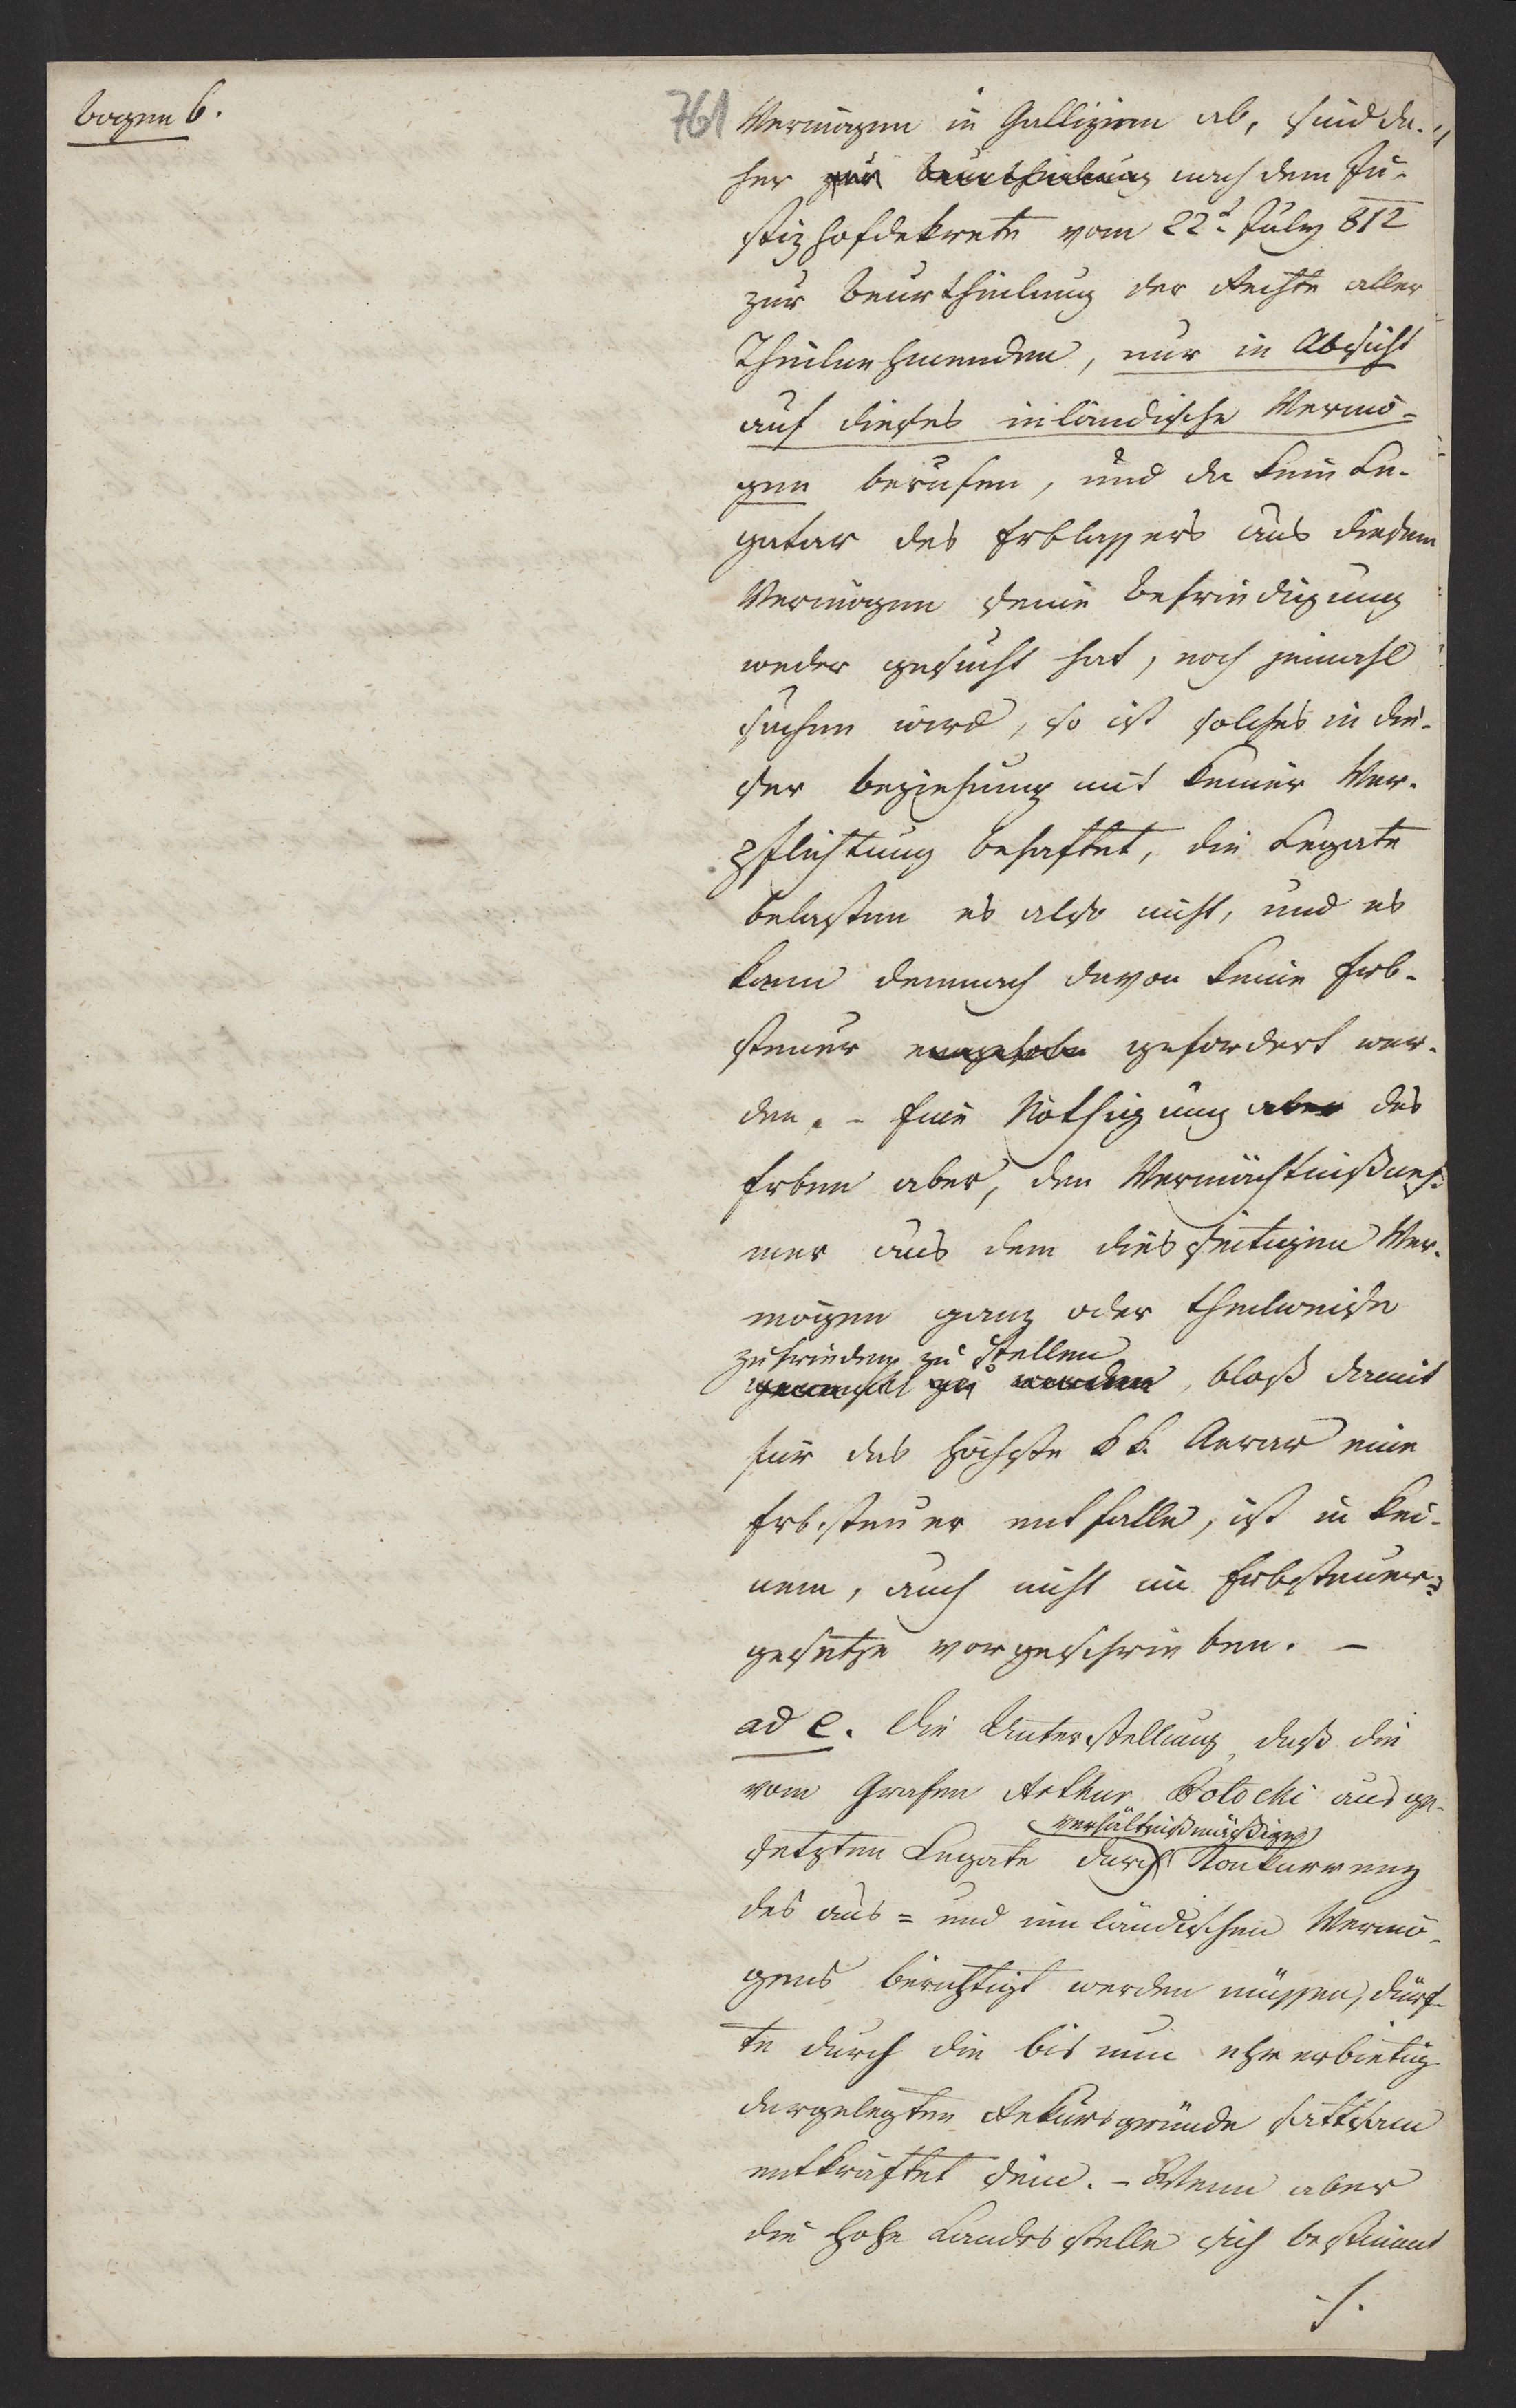 Bogen 6.
761
Vermögen in Gallizien ab, sind da-
her zur Beurtheilung nach dem Ju-
stizhofdekrete vom 22t July 812
zur Beurtheilung der Rechte aller
Theilnehmenden, nur in Absicht
auf dieses inländische Vermö-
gen berufen, und da kein Le-
gatar des Erblassers aus diesem
Vermögen seine Befriedigung
weder gesucht hat, noch jemahl
suchen wird, so ist solches in die-
ser Beziehung mit keiner Ver-
pflichtung behaftet, die Legate
belasten es also nicht, und es
kann demnach davon keine Erb-
steuer gefordert wer-
den. - Eine Nöthigung aber des
Erben aber, den Vermächtnißneh-
mer aus dem diesseitigen Ver-
mögen ganz oder theilweise
zufrieden zu stellen
zu werden, bloß damit
für das höchste k.k. Aerar eine
Erbsteuer entfalle, ist in kei-
nem, auch nicht im Erbsteuer-
gesetze vorgeschrieben. -
ad e. Die Unterstellung, daß die
vom Grafen Arthur Potocki ausge-
verhältnißmäßige
setzten Legate durch Konkurrenz
des aus- und inländischen Vermö-
gens berichtigt werden müssen, dürf-
te durch die bis nun ehrerbietig
dargelegten Rekursgründe sattsam
entkräftet sein. - Wenn aber
die hohe Landesstelle sich bestimmt
./.